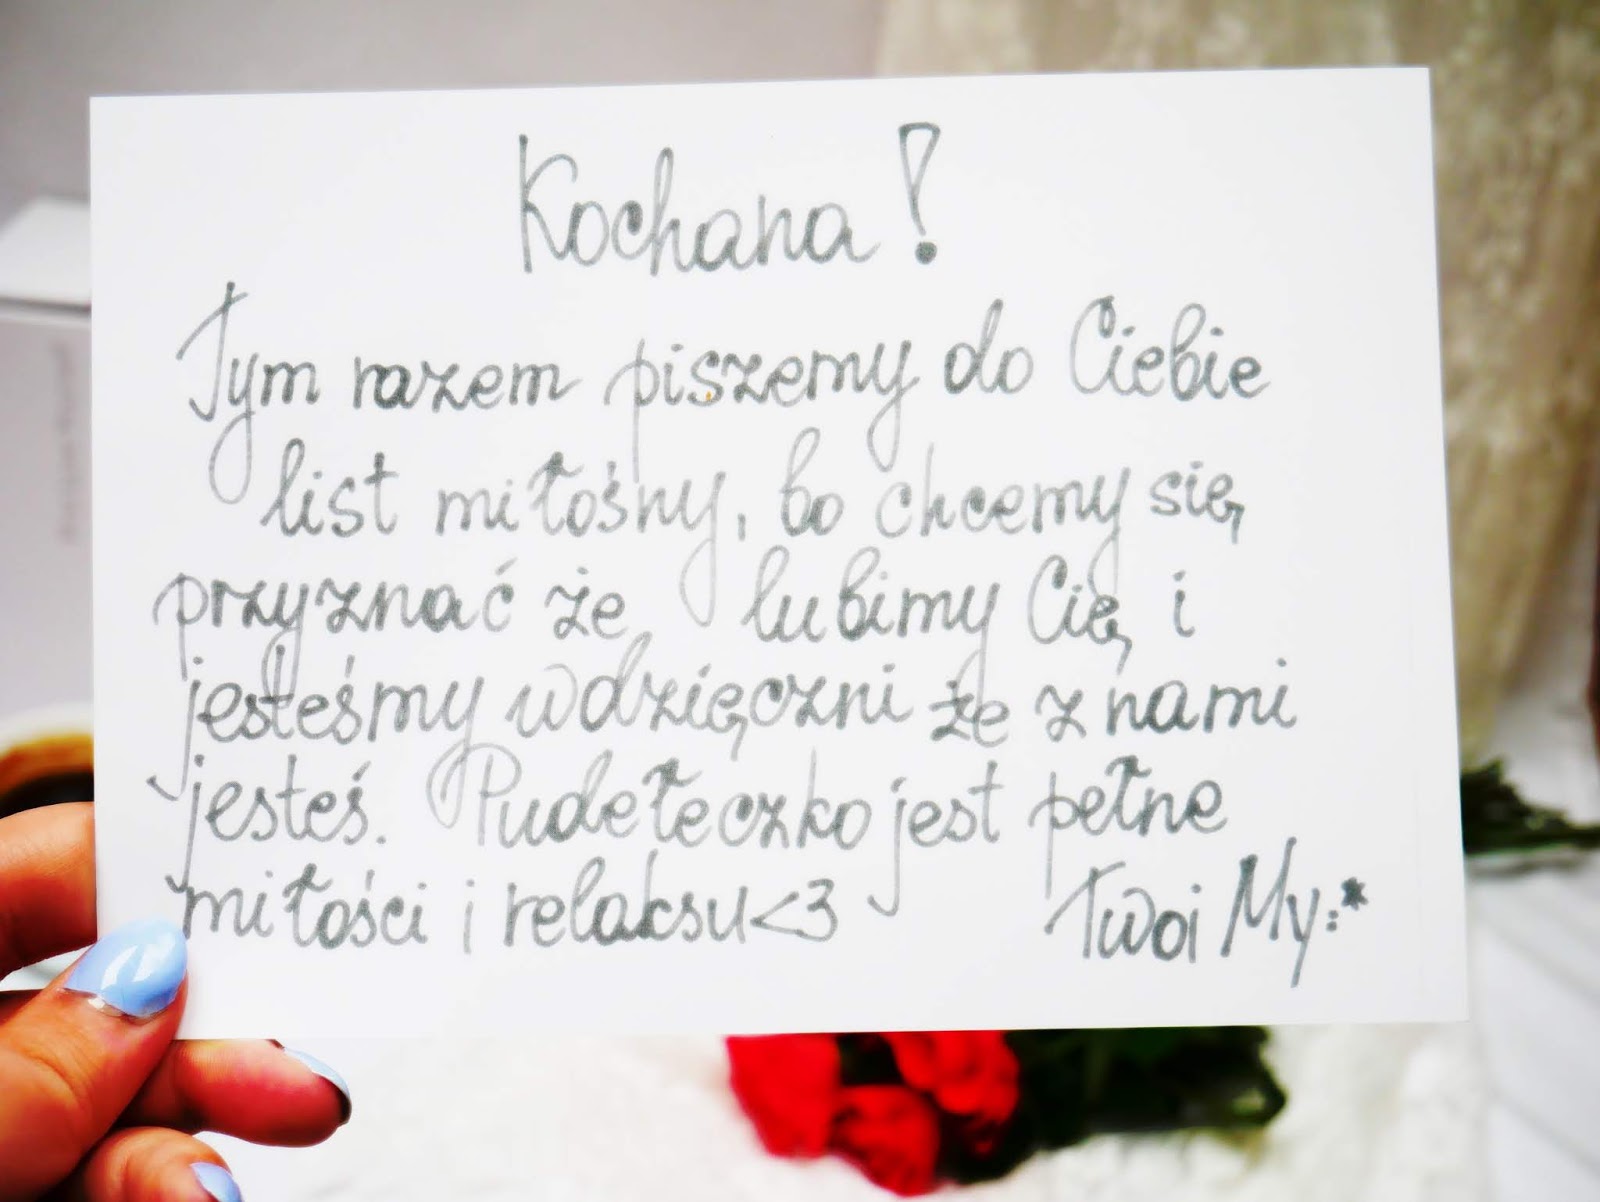 Kochana!
Tym razem piszemy do Ciebie
list miłośny, bo chcemy się
przyznać że lubimy Cię i
jesteśmy wdzięczni że z nami
jesteś. Pudełeczko jest pełne
miłości i relaksu<3 Twoi My:*